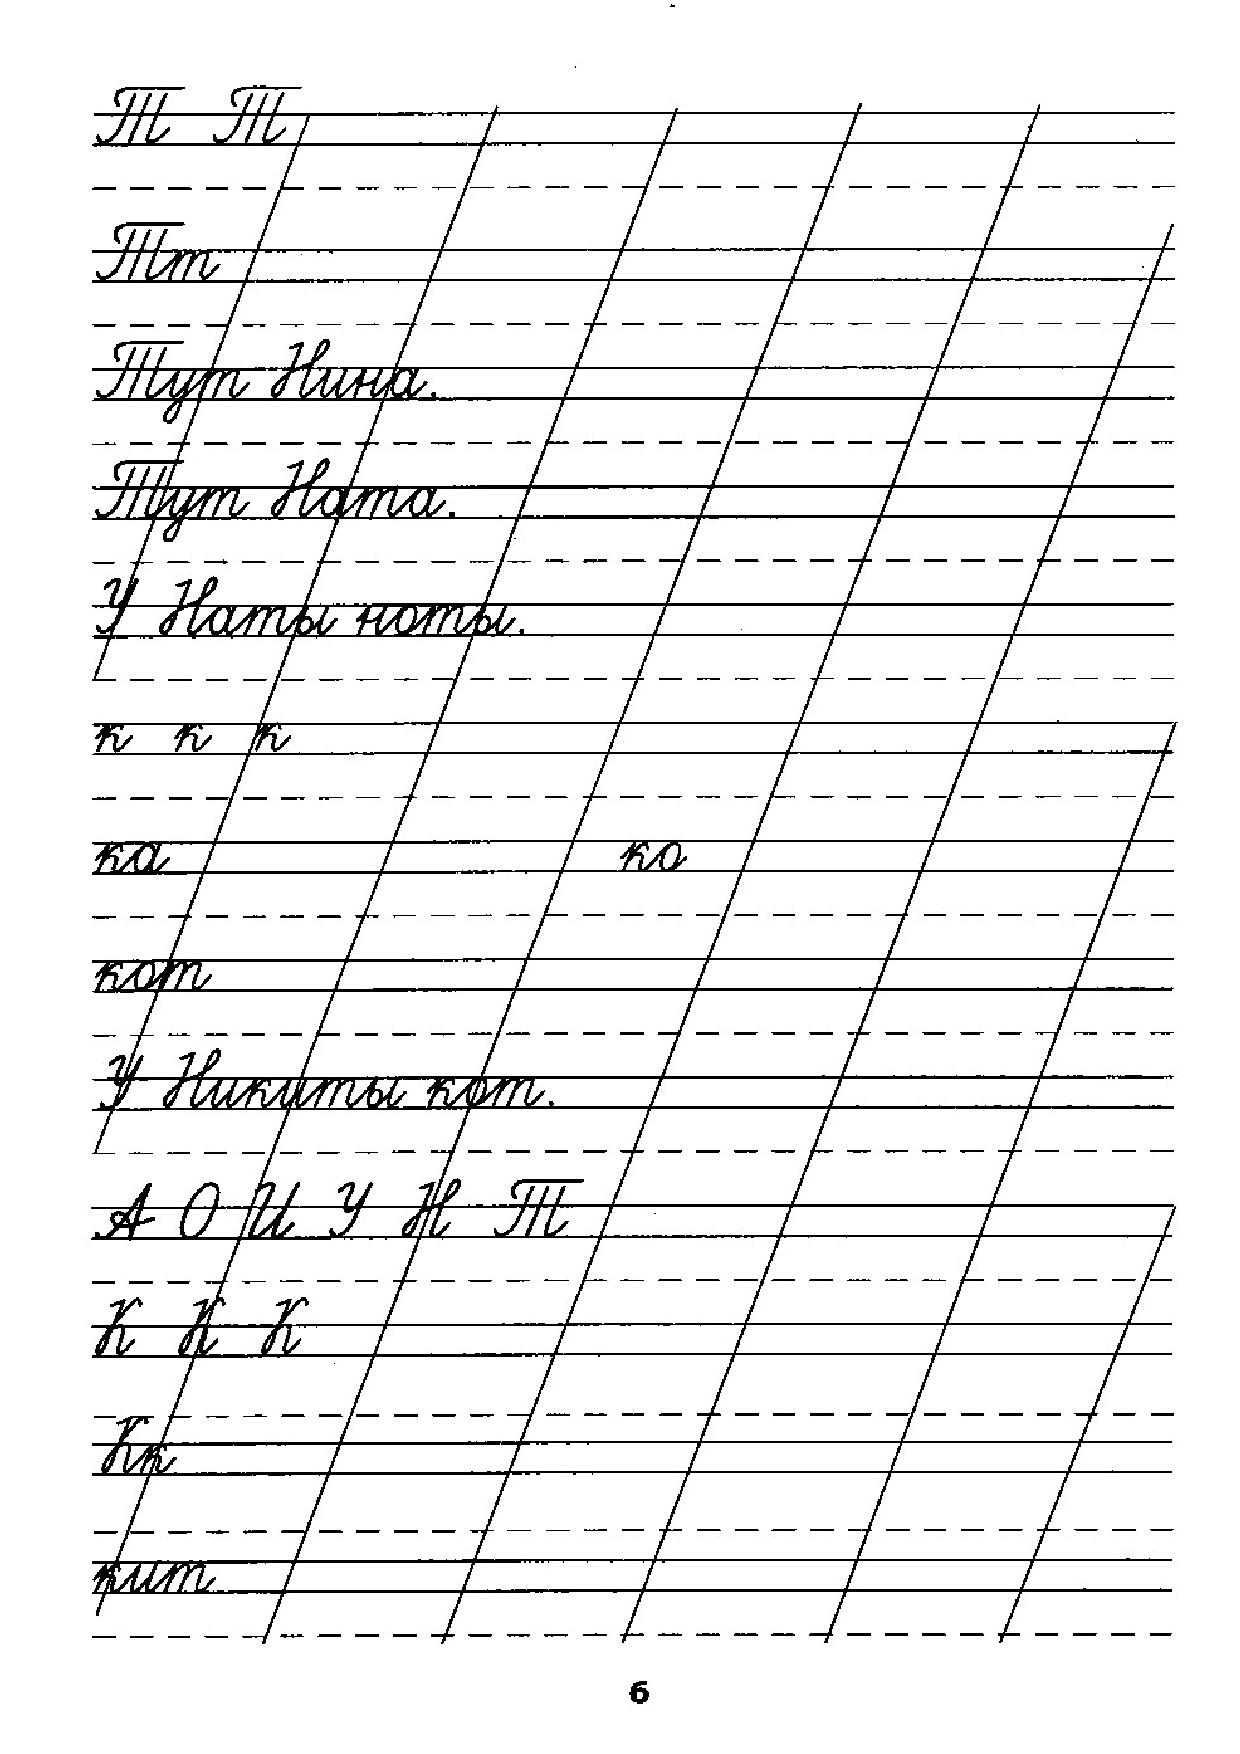 Т Т
Тт
Тут Нина.
Тут Ната.
У Наты ноты.
к к к
ка ко
кот
У Никиты кот.
А О И У Н Т
К К К
Кк
кит
6